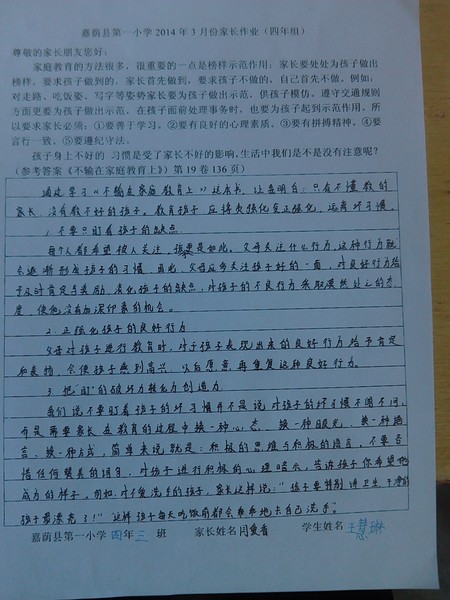 嘉荫县第一小学 2014 年 3 月份家长作业（四年组）
尊敬的家长朋友您好：
家庭教育的方法很多，很重要的一点是榜样示范作用：家长要处处为孩子做出
榜样。要求孩子做到的，家长首先做到，要求孩子不做的，自己首先不做。例如：
对走路、吃饭姿、写字等姿势家长要为孩子做出示范，供孩子模仿。遵守交通规则
方面更要为孩子做出示范。在孩子面前处理事务时，也要为孩子起到示范作用。所
以要求家长必须：①要善于学习。②要有良好的心理素质。③要有拼搏精神。④要
言行一致。⑤要遵纪守法。
孩子身上不好的 习惯是受了家长不好的影响,生活中我们是不是没有注意呢？
（参考答案《不输在家庭教育上》）第 19 卷 136 页）
通过学习《不输在家庭教育上》这本书，让我明白：只有不懂教的
家长，没有教不好的孩子。教育孩子应将负强化变正强化，远离坏习惯。
1. 不要只盯着孩子的缺点
每个人都希望被人关注，孩子更是如此。父母关注什么行为，这种行为就
会逐渐形成孩子的习惯。因此，父母应多关注孩子好的一面，对良好行为给
予及时肯定与奖励，淡化孩子的缺点，对孩子的不良行为采取漠然处之的态
度，使他没有加深印象的机会。
2. 正强化孩子的良好行为
父母对孩子进行教育时，对于孩子表现出来的良好行为给予肯定
和表扬，会使孩子感到高兴，以后愿意再重复这种良好行为。
3. 把"盯"的破坏力转化为创造力
我们说不要盯着孩子的坏习惯并不是说对孩子的坏习惯不明不问，
而是要家长在教育的过程中换一种心态、换一种眼光、换一种语
言、换一种方式，简单来说就是：积极的思维与积极的语言，不要吝
惜任何赞美的词句，对孩子进行积极的心理暗示，告诉孩子你希望他
成为的样子。例如，对不爱洗手的孩子，家长这样说："孩子要特别讲卫生，干净的
孩子最漂亮了！"这样孩子每天吃饭前都会乖乖地去自己洗手。
嘉荫县第一小学 四年三 班 家长姓名 闫爱香 学生姓名 王慧琳